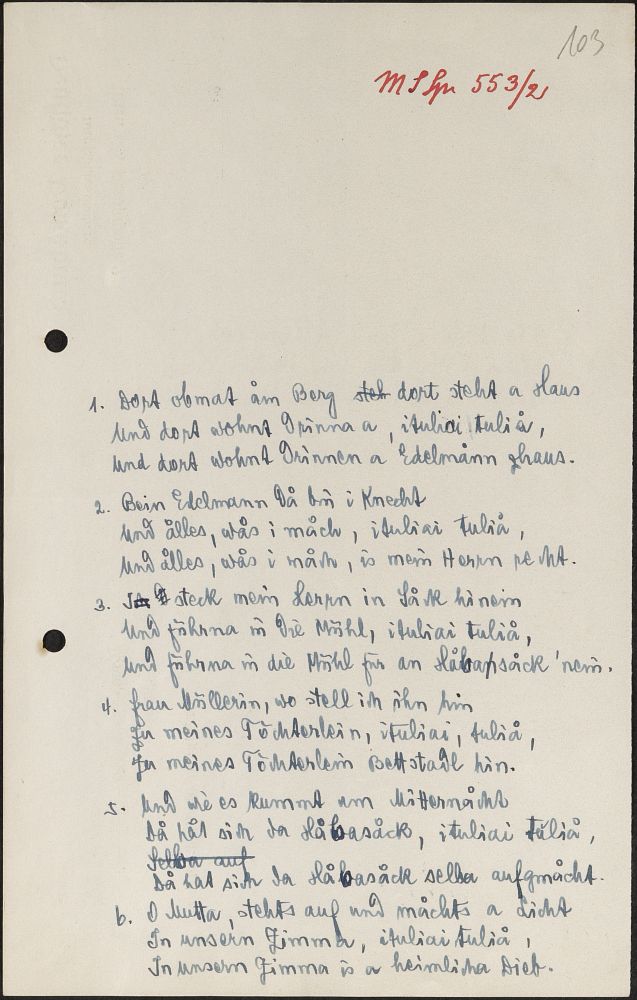 103
MS Spr 553/2
1. Dort obmat åm Berg steh dort steht a Haus
Und dort wohnt drinna a, ituliai tuliå,
Und dort wohnt drinnen a Edelmånn zhaus.
2. Bein Edelmann då bin i Knecht
Und ålles, wås i måch, ituliai tuliå,
Und ålles, wås i måch, is mein Herrn recht.
3. I steck mein Herrn in Såck hinein
Und führna in die Mühl, ituliai tuliå,
Und führna in die Mühl für an Håbapsåck 'nein.
4. Frau Müllerin, wo stell ich ihn hin
Zu meines Töchterlein, ituliai, tuliå,
Zu meines Töchterlein Bettstadl hin.
5. Und wie es kummt um Mitternåcht
Då håt sich da Håbasåck, ituliai tuliå,
Selba auf
Då hat sich da Håbasåck selba aufgmåcht.
6. O Mutta, stehts auf und måchts a Licht
In unsern Zimma, ituliai tuliå,
In unsern Zimma is a heimlicha Dieb.